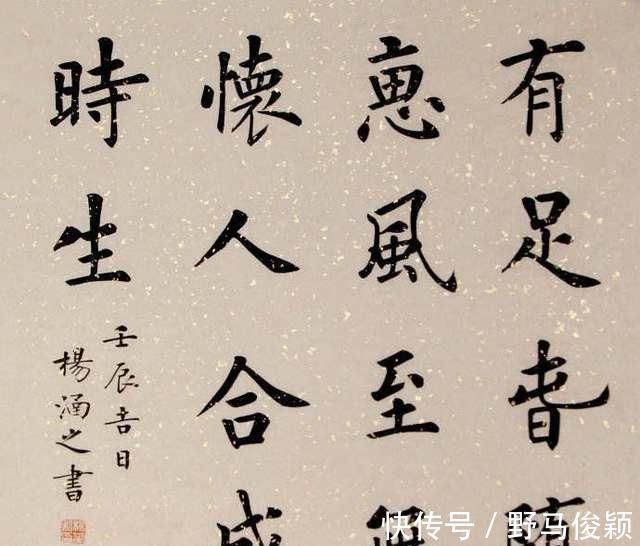 有足
惠風至無
懷人合
時生
壬辰吉日
楊涵之書
快传号 / 野马俊颖